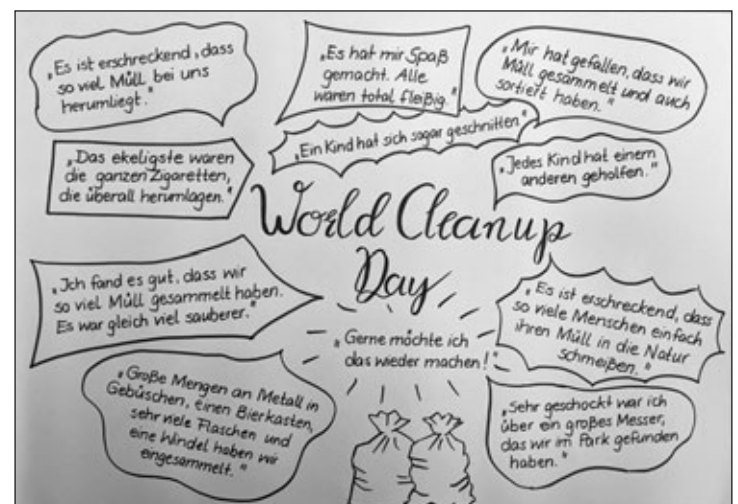 „Es ist erschreckend, dass
so viel Müll bei uns
herumliegt."
„Es hat mir Spaß
gemacht. Alle
waren total fleißig."
„Mir hat gefallen, dass wir
Müll gesammelt und auch
sortiert haben."
„Ein Kind hat sich sogar geschnitten"
„Das ekeligste waren
die ganzen Zigaretten,
die überall herumlagen."
„Jedes Kind hat einem
anderen geholfen."
World Cleanup
Day
„Ich fand es gut, dass wir
so viel Müll gesammelt haben.
Es war gleich viel sauberer."
„Es ist erschreckend, dass
so viele Menschen einfach
ihren Müll in die Natur
schmeißen."
„Gerne möchte ich
das wieder machen!"
„Große Mengen an Metall in
Gebüschen, einen Bierkasten,
sehr viele Flaschen und
eine Windel haben wir
eingesammelt."
„Sehr geschockt war ich
über ein großes Messer,
das wir im Park gefunden
haben."